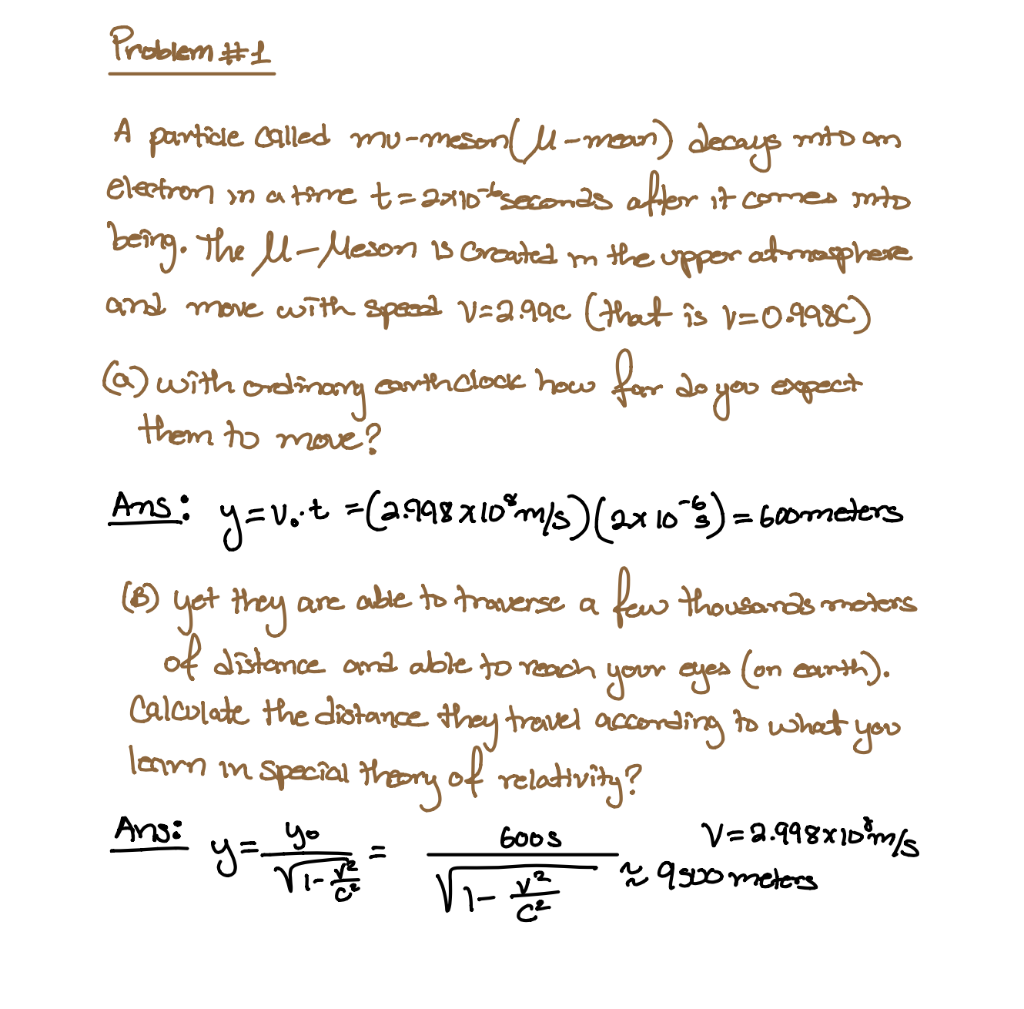 Problem #1
A particle called mu-meson (μ-mean) decays into an
electron in a time t = 2x10⁻⁶ seconds after it comes into
being. The μ-Meson is created in the upper atmosphere
and move with speed V=2.99c (that is V=0.998C)
(a) with ordinary earth clock how far do you expect
them to move?
Ans: y = v₀.t = (2.998 x 10⁸ m/s)(2x 10⁻⁶ s) = 600 meters
(B) yet they are able to traverse a few thousands meters
of distance and able to reach your eyes (on earth).
Calculate the distance they travel according to what you
learn in special theory of relativity?
Ans: y = y₀ / √(1 - v²/c²) = 600s / √(1 - v²/c²) ≈ 9500 meters V = 2.998x10⁸ m/s